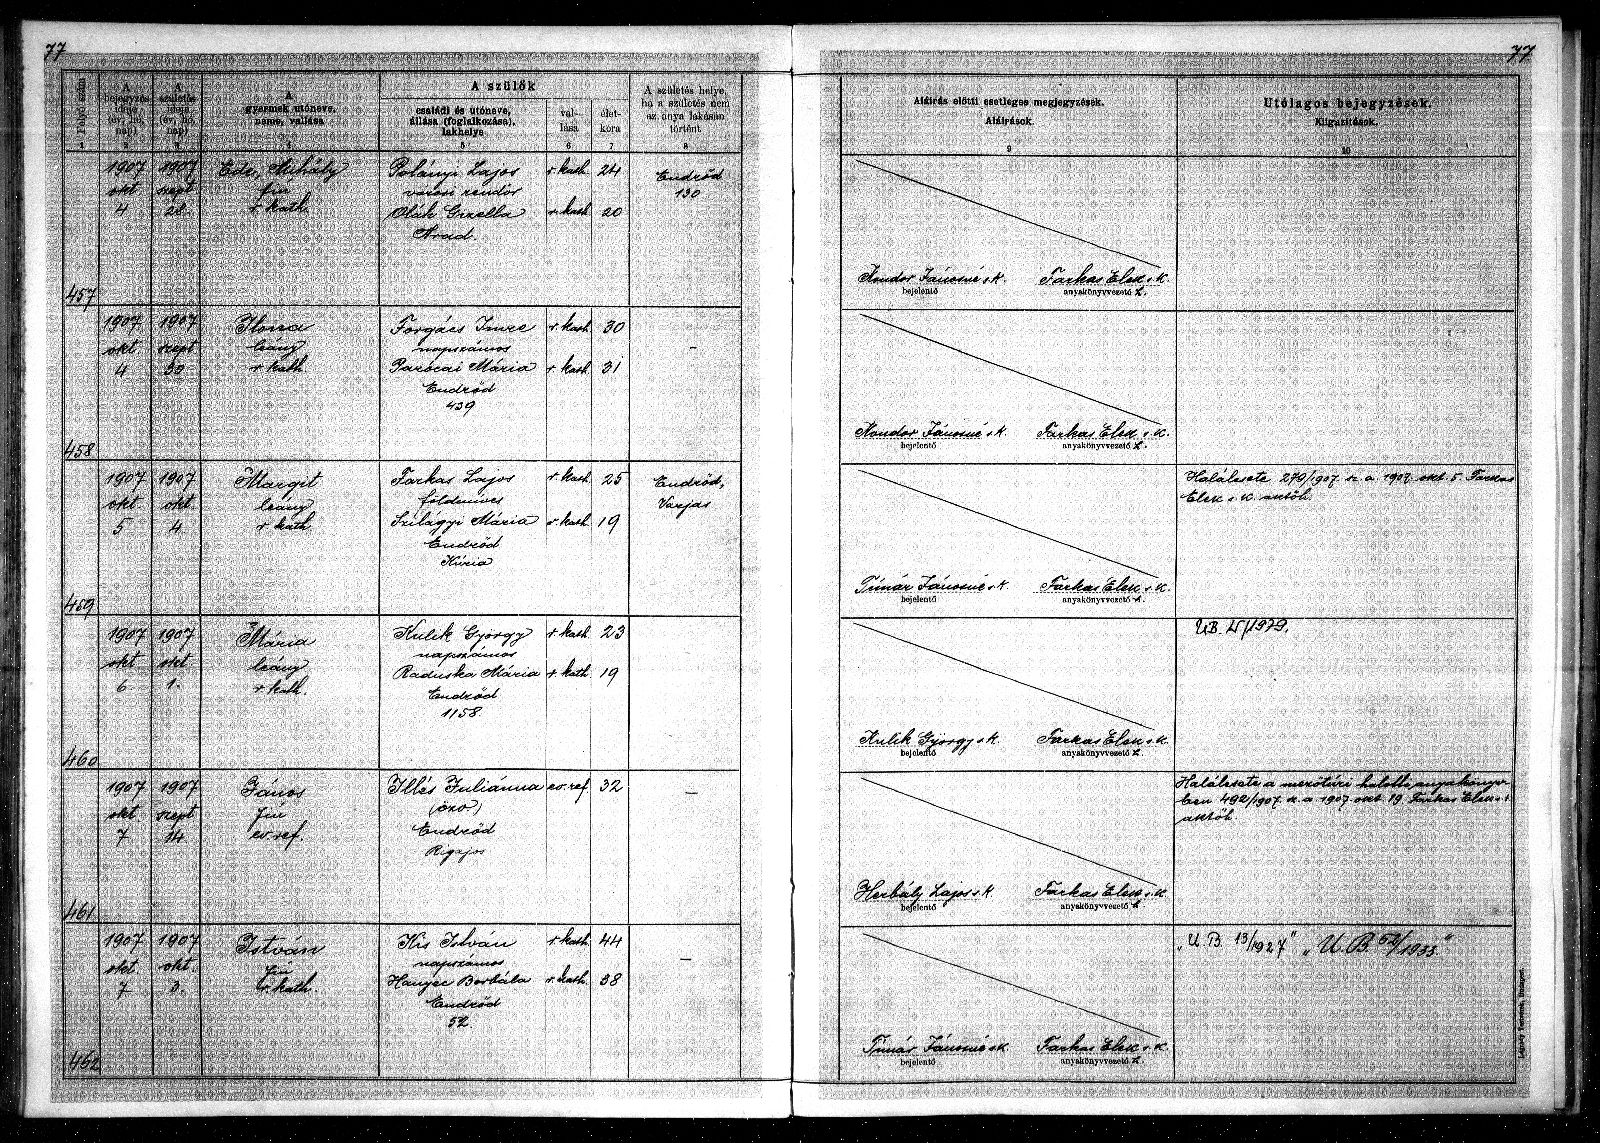 77
77
Folyó szám
A bejegyzés ideje (év, hó, nap)
A születés ideje (év, hó, nap)
A gyermek utóneve, neme, vallása
A szülők
családi és utóneve, állása (foglalkozása), lakhelye
vallása
életkora
A születés helye, ha a születés nem az anya lakásán történt
Aláírás előtti esetleges megjegyzések.
Aláírások.
Utólagos bejegyzések.
Kiigazítások.
1 2 3 4 5 6 7 8 9 10
1907 1907 Ede, Mihály Polányi Lajos r. kath. 24 Endrőd
okt szept fiú városi rendőr 130
4 28 r. kath. Oláh Gizella r. kath. 20
Arad.
457
Nondor Jánosné s.k. Farkas Elek s.k.
bejelentő anyakönyvvezető h.
1907 1907 Ilona Forgács Imre r. kath. 30
okt szept leány napszámos –
4 30 r. kath. Parócai Mária r. kath. 31
Endrőd
439
458
Nondor Jánosné s.k. Farkas Elek s.k.
bejelentő anyakönyvvezető h.
1907 1907 Margit Farkas Lajos r. kath. 25 Endrőd,
okt okt. leány földmives Varjas
5 4 r. kath. Szilágyi Mária r. kath. 19
Endrőd
Kúria
459
Halálesete 279/1907. sz. a. 1907. okt. 5. Farkas
Elek s. k. aktőh.
Tímár Jánosné s.k. Farkas Elek s.k.
bejelentő anyakönyvvezető h.
1907 1907 Mária Kulik György r. kath. 23
okt okt leány napszámos
6 1. r. kath. Raduska Mária r. kath. 19
Endrőd
1158.
460
Kulik György s.k. Farkas Elek s.k.
bejelentő anyakönyvvezető h.
1907 1907 János Illés Juliánna ev. ref 32
okt szept fiú –
7 14 ev. ref. Endrőd
Rigajos
461
Halálesete a mezőtúri halotti anyakönyv-
ben 492/1907. sz. a 1907. okt 19. Farkas Elek s.k.
aktőh.
Herbály Lajos s.k. Farkas Elek s.k.
bejelentő anyakönyvvezető h.
1907 1907 István Kis István r. kath. 44
okt okt. fiú napszámos –
7 3. r. kath. Hanyec Borbála r. kath. 38
Endrőd
52
462
„U. B. 13/1927" „U. B 52/1933."
Tímár Jánosné s.k. Farkas Elek s.k.
bejelentő anyakönyvvezető h.